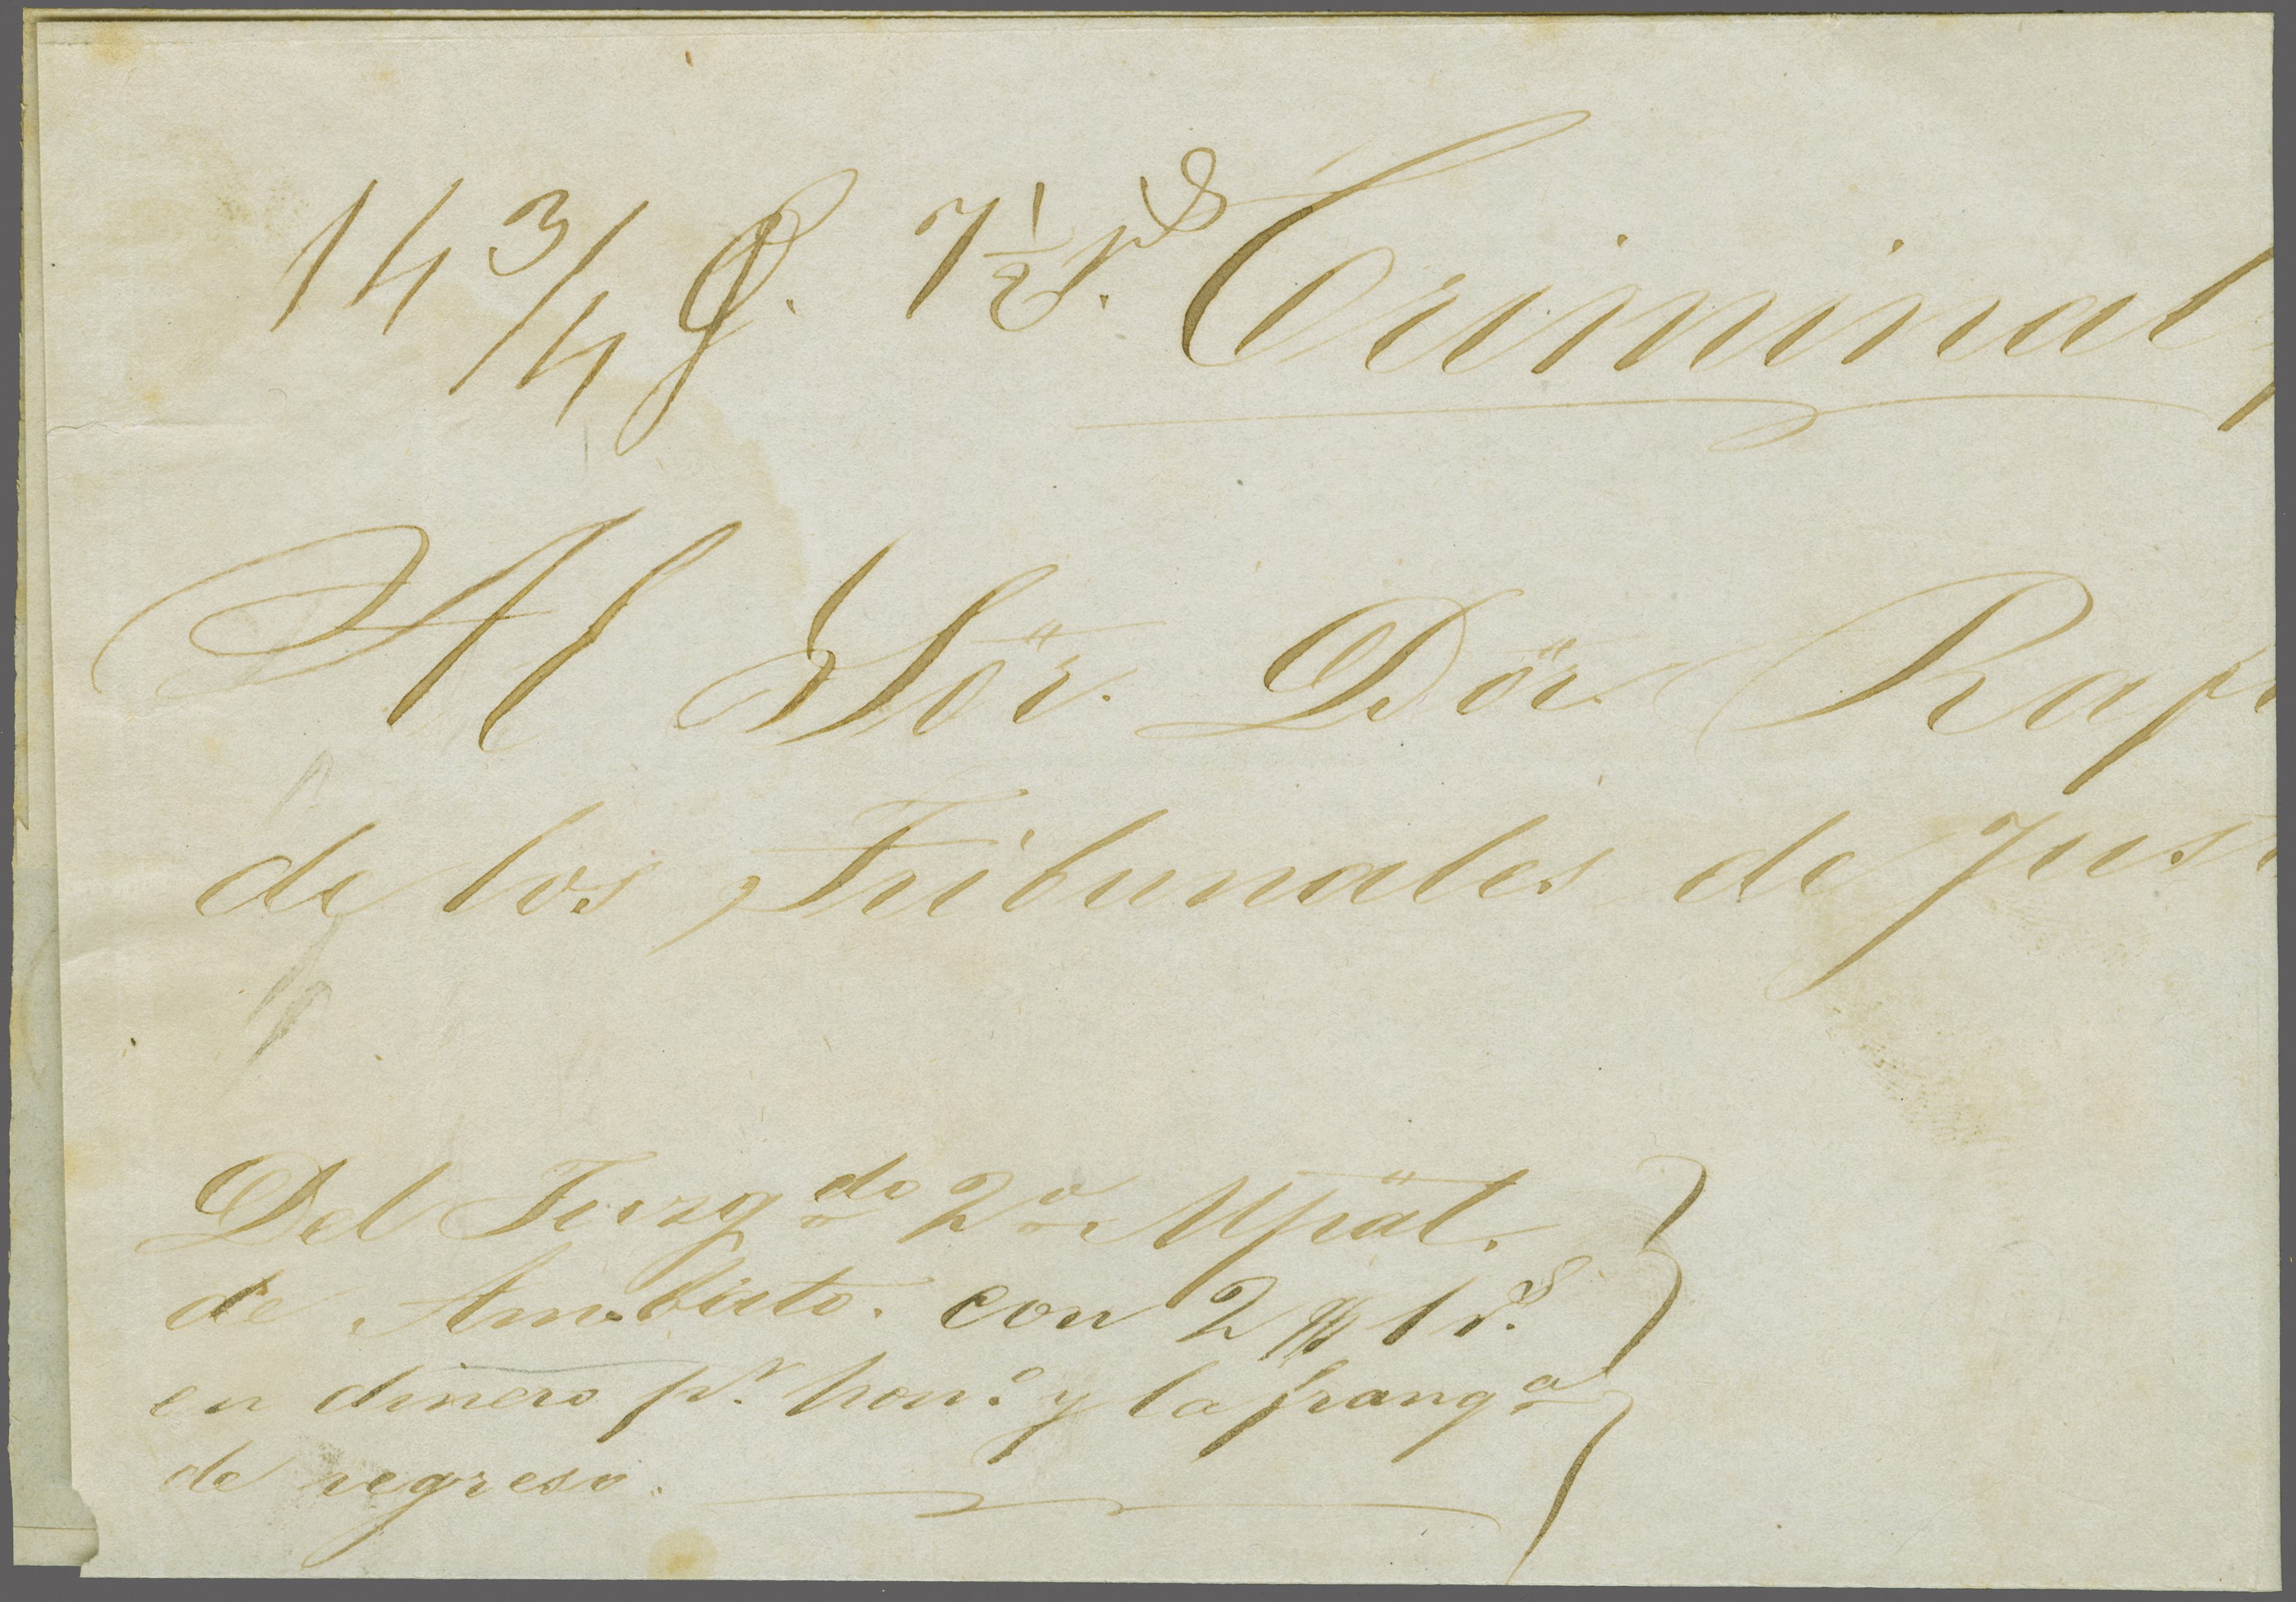 14 3/4 O. 7 1/2 rs. Criminal
Al Sör. Dör. Rafa
de los Tribunales de Jus
Del Juzgdo 2o Mpäl.
de Ambato. con 2 $ 1 rs.
en dinero pr. hons. y la franqa
de regreso.